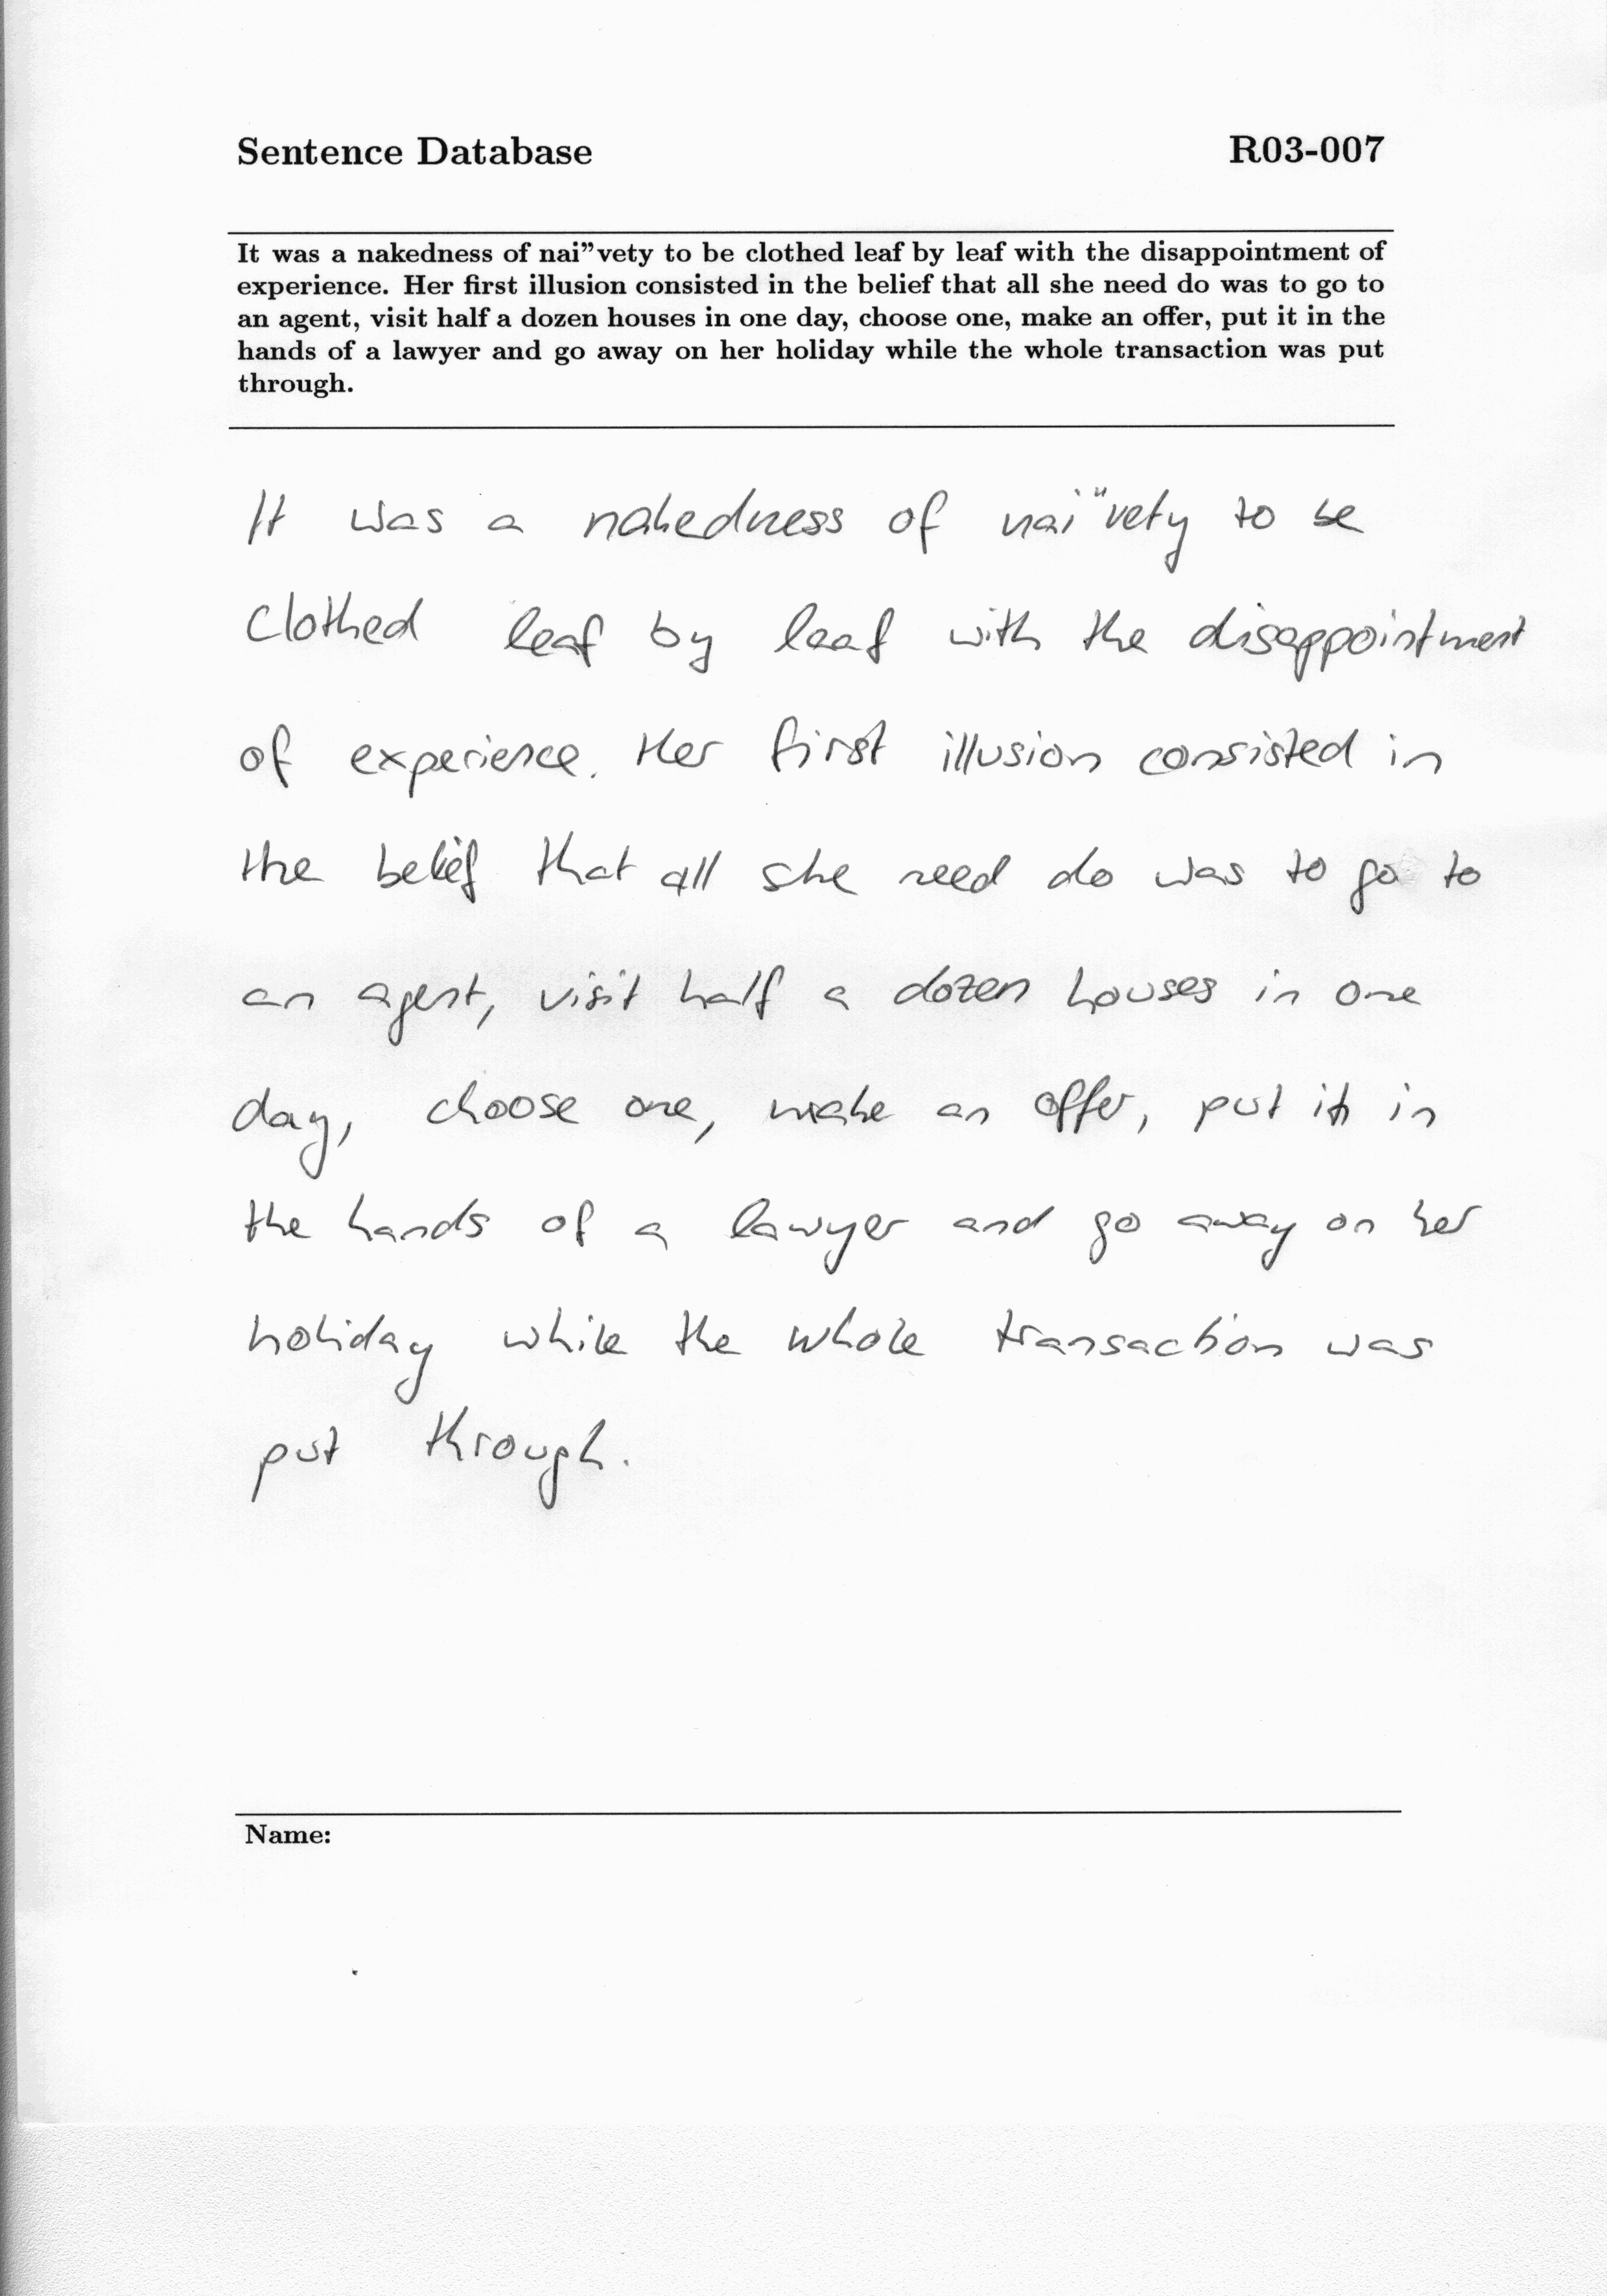 Sentence Database R03-007
It was a nakedness of nai”vety to be clothed leaf by leaf with the disappointment of
experience. Her first illusion consisted in the belief that all she need do was to go to
an agent, visit half a dozen houses in one day, choose one, make an offer, put it in the
hands of a lawyer and go away on her holiday while the whole transaction was put
through.
It was a nakedness of nai"vety to be
clothed leaf by leaf with the disappointment
of experience. Her first illusion consisted in
the belief that all she need do was to go to
an agent, visit half a dozen houses in one
day, choose one, make an offer, put it in
the hands of a lawyer and go away on her
holiday while the whole transaction was
put through.
Name: